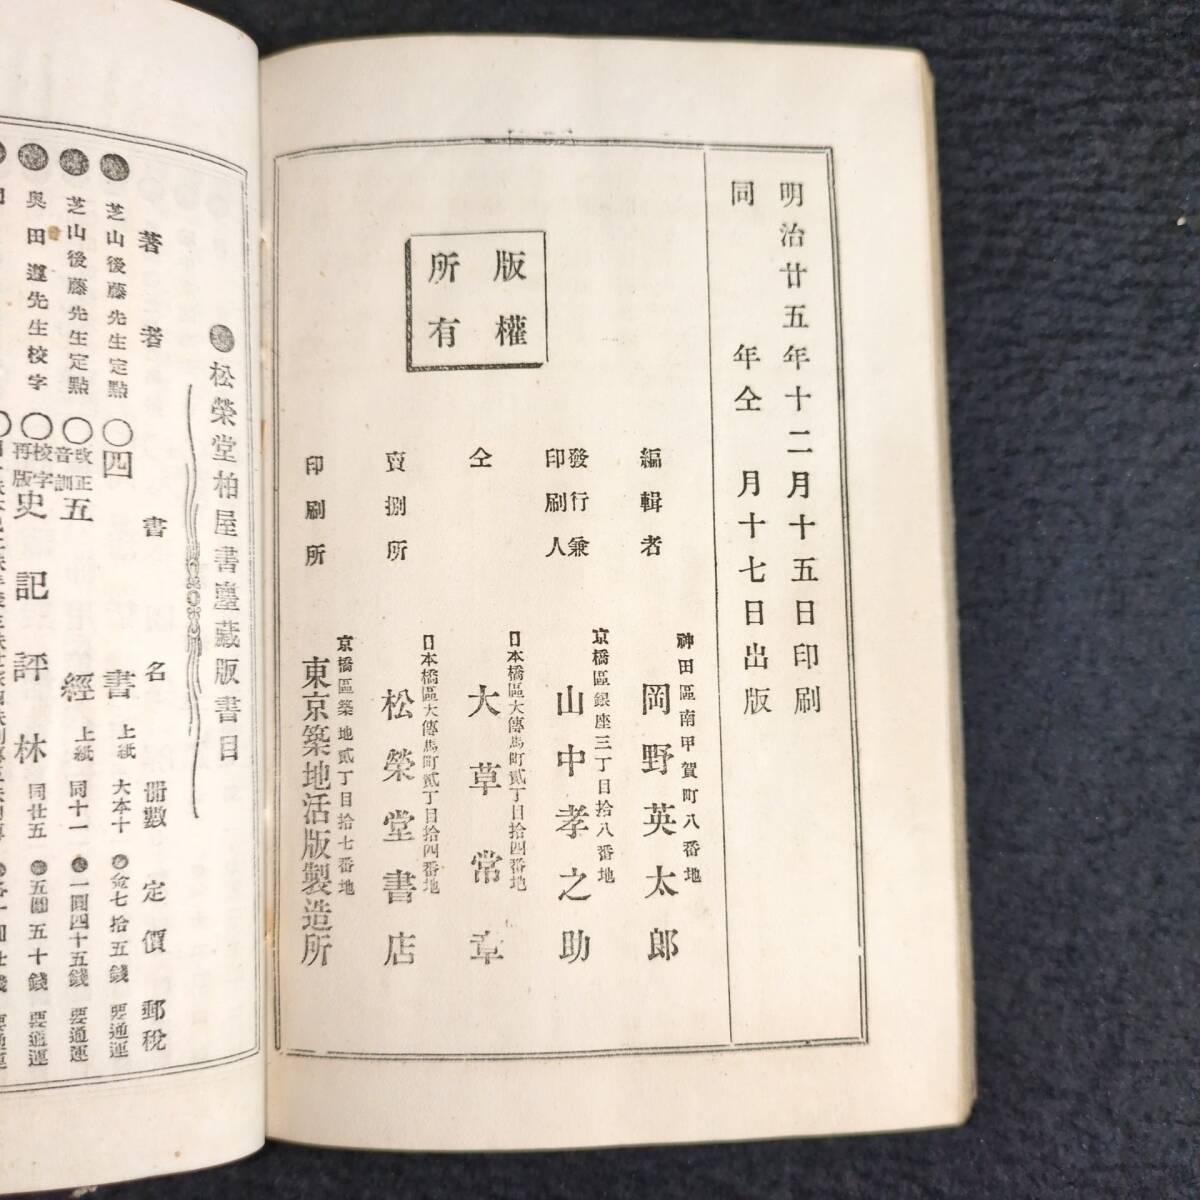 明治廿五年十二月十五日印刷
同年仝月十七日出版
版權
所有
編輯者
神田區南甲賀町八番地
岡野英太郎
發行兼
印刷人
京橋區銀座三丁目拾八番地
山中孝之助
仝
日本橋區大傳馬町貳丁目拾四番地
大草常章
賣捌所
日本橋區大傳馬町貳丁目拾四番地
松榮堂書店
印刷所
京橋區築地貳丁目拾七番地
東京築地活版製造所
松榮堂柏屋書臺藏版書目
著者 書名 冊數 定價 郵稅
芝山後藤先生定點 ○四書 上紙 大本十 金七拾五錢 要通運
芝山後藤先生定點 ○改正音訓五經 上紙 同十一 一圓四十五錢 要通運
奥田遵先生校字 ○校字再版史記評林 同廿五 五圓五十錢 要通運